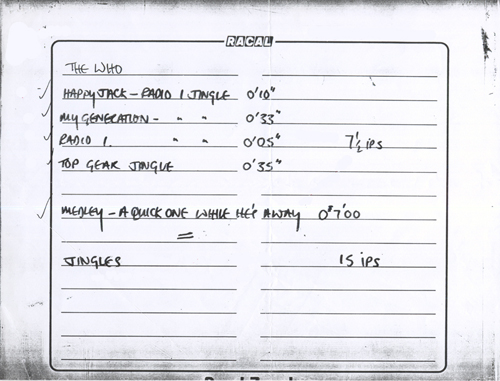 RACAL
THE WHO
HAPPY JACK - RADIO 1 JINGLE 0'10"
MY GENERATION - " " 0'33"
RADIO 1. " " 0'05" 7½ ips
TOP GEAR JINGLE 0'35"
MEDLEY - A QUICK ONE WHILE HE'S AWAY 0"7'00
JINGLES 15 ips